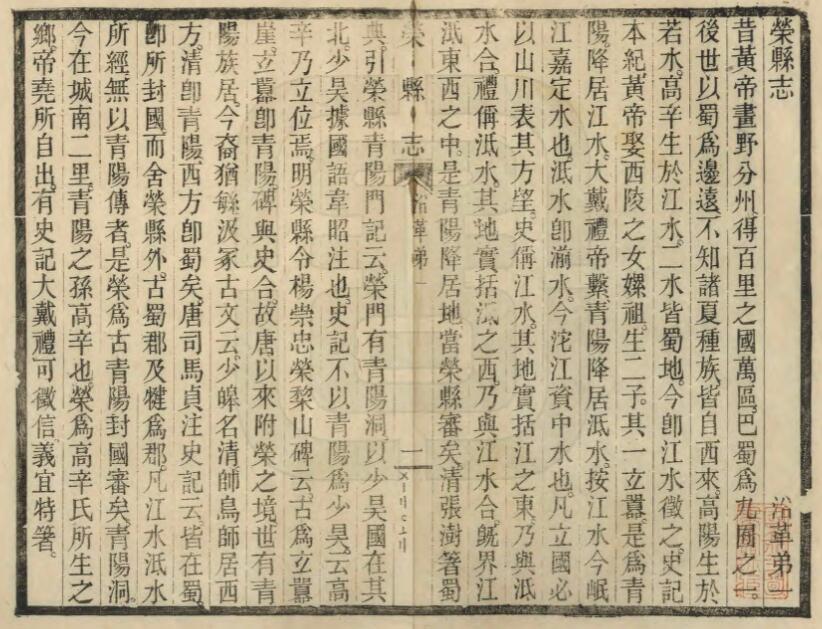 榮縣志 沿革弟一
昔黃帝畫野分州、得百里之國萬區。巴蜀爲九囿之一。
後世以蜀爲邊遠、不知諸夏種族、皆自西來。高陽生於
若水。高辛生於江水。二水皆蜀地。今卽江水徵之。史記
本紀、黃帝娶西陵之女嫘祖。生二子。其一立囂、是爲青
陽。降居江水。大戴禮帝繫、青陽降居泜水。按江水今岷
江嘉定水也。泜水卽湔水。今沱江資中水也。凡立國必
以山川表其方望。史偁江水。其地實括江之東。乃與泜
水合。禮稱泜水。其地實括泜之西。乃與江水合。旣界江
泜東西之中。是青陽降居地當榮縣審矣。清張澍箸蜀
榮縣志 沿革弟一 一
典。引榮縣青陽門記云。榮門有青陽洞。以少昊國在其
北。少昊據國語韋昭注也。史記不以青陽爲少昊。云高
辛乃立位焉。明榮縣令楊崇忠榮黎山碑云。古爲立囂
崖。立囂卽青陽。碑與史合。故唐以來附榮之境。世有青
陽族居。今裔猶緐。汲冢古文云。少皞名清。師鳥師居西
方。清卽青陽。西方卽蜀矣。唐司馬貞注史記云。皆在蜀。
卽所封國。而舍榮縣外。古蜀郡及犍爲郡。凡江水泜水
所經。無以青陽傳者。是榮爲古青陽封國審矣。青陽洞。
今在城南二里。青陽之孫高辛也。榮爲高辛氏所生之
鄉。帝堯所自出。有史記大戴禮可徵信。義宜特箸。